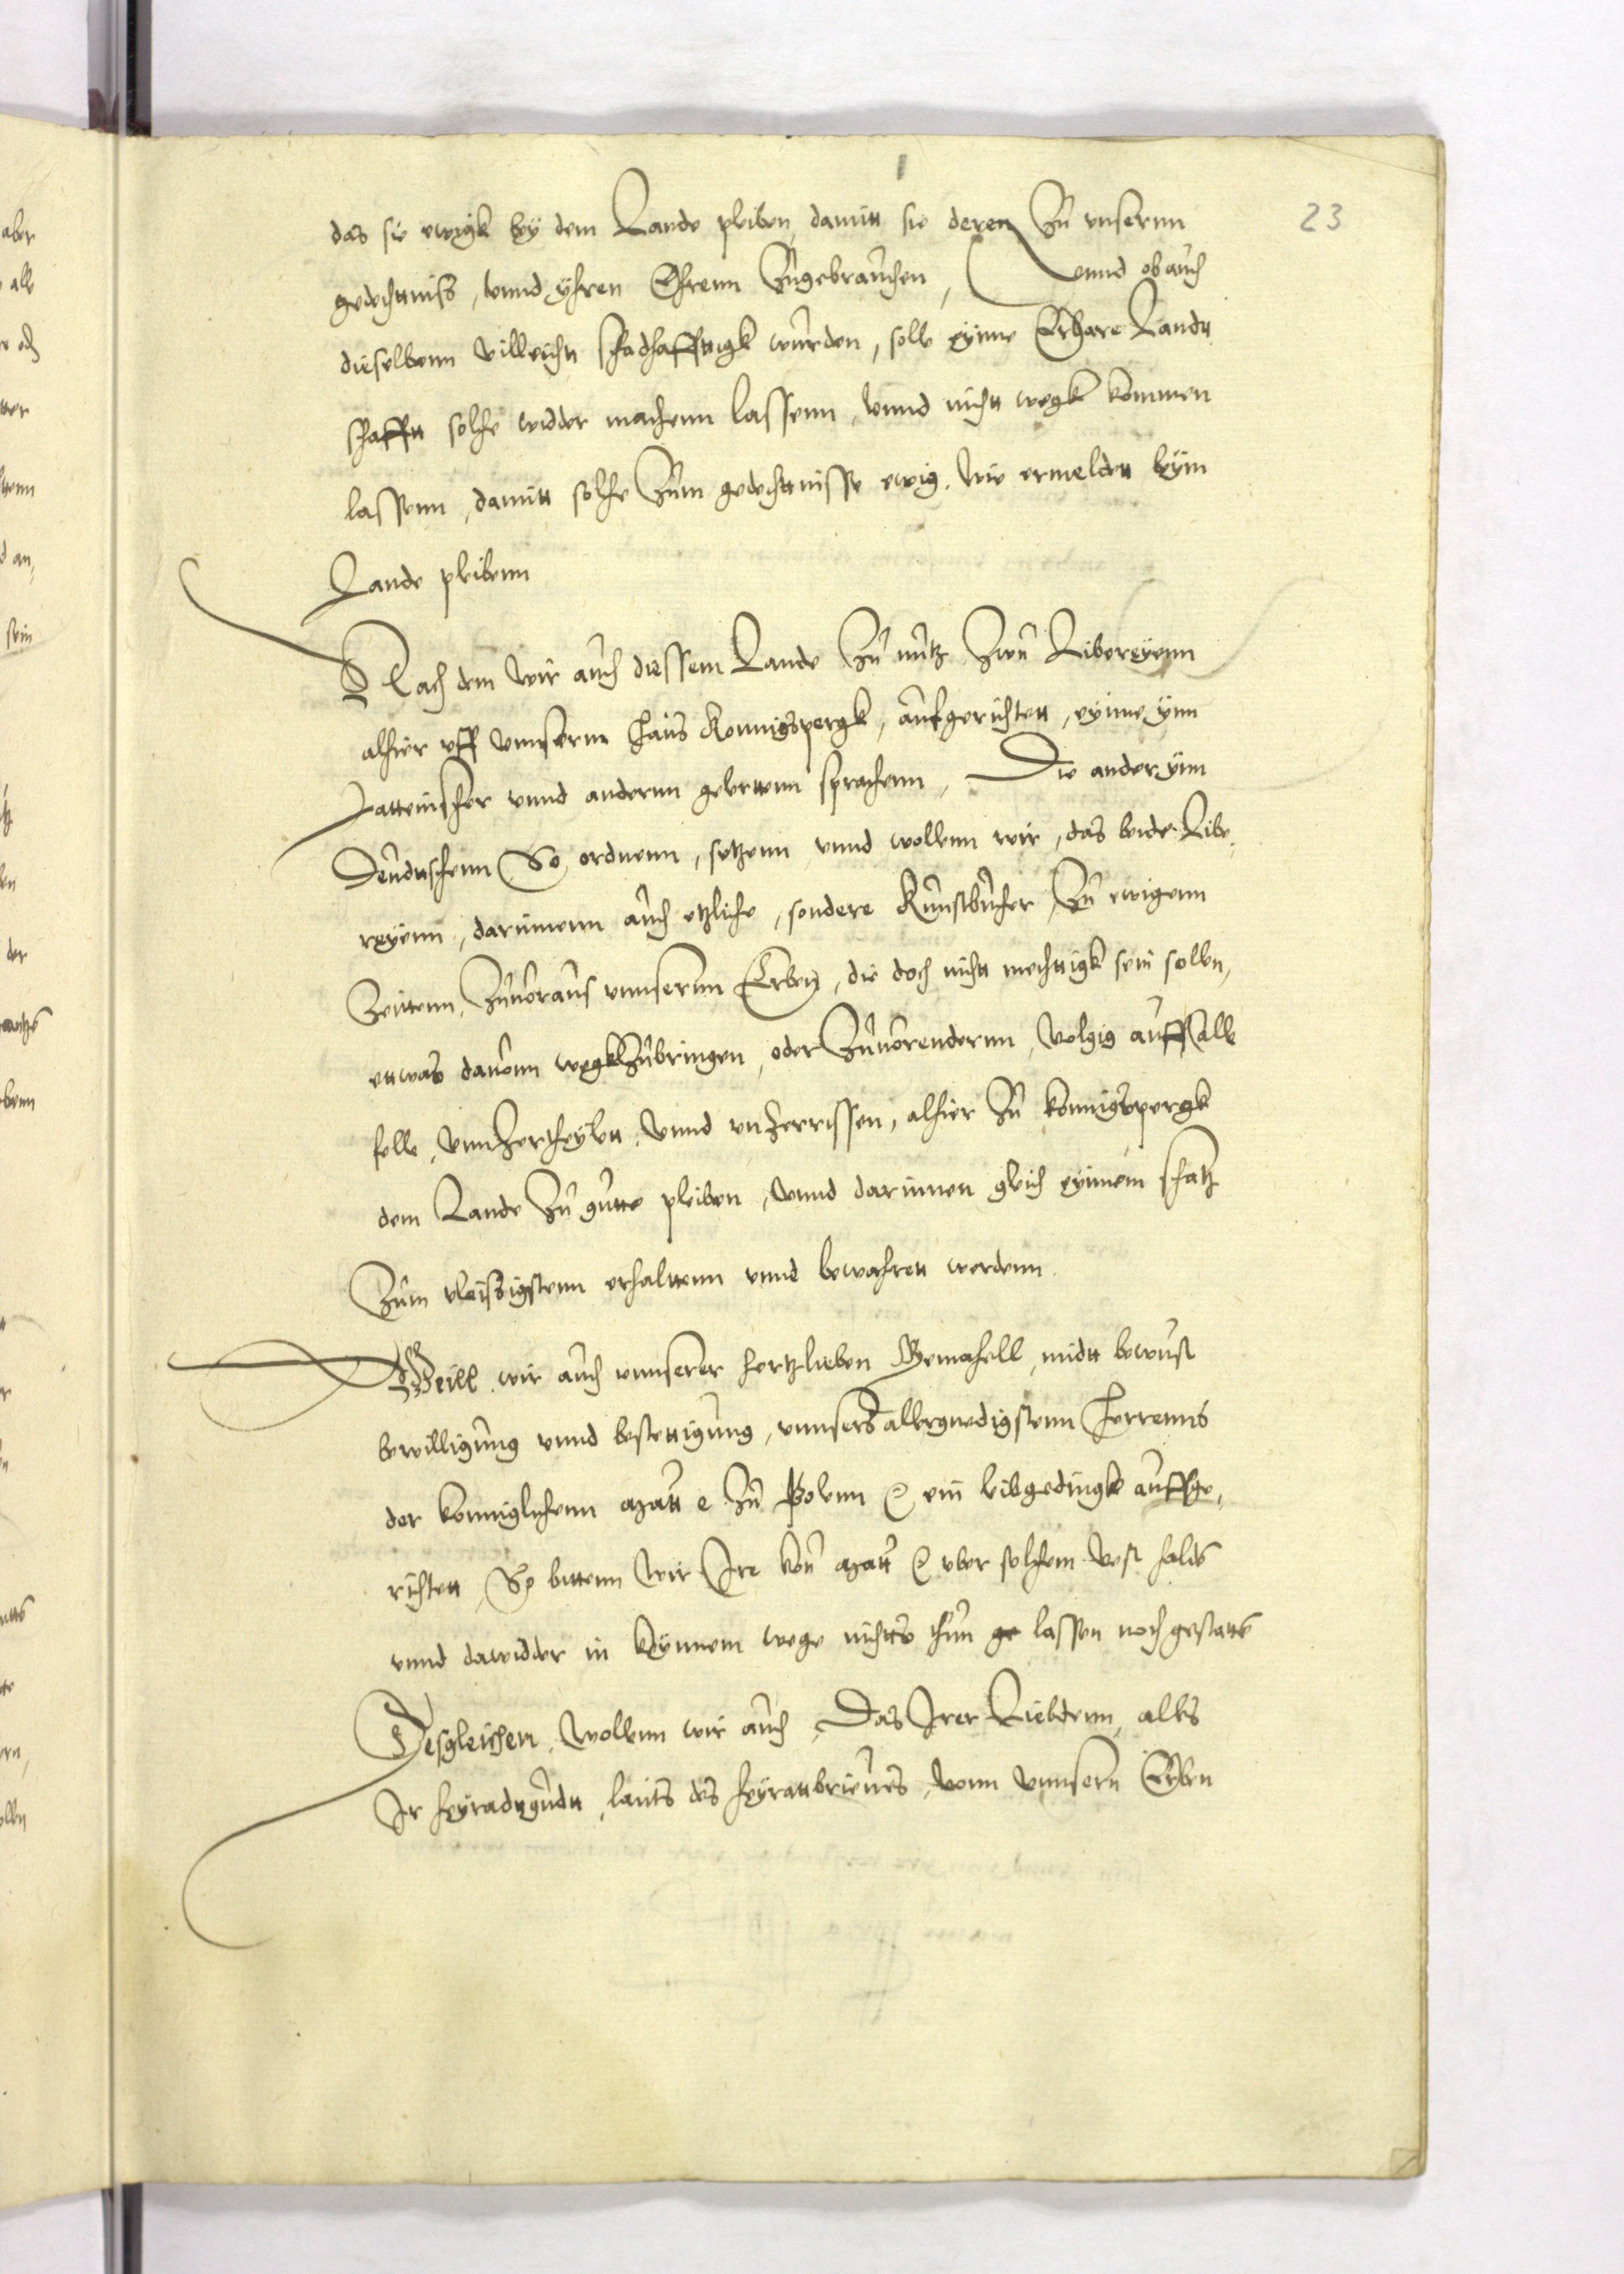 23
das sie ewigk bey dem Lande pleiben, damitt sie deren Zu unsernn
gedechttniss, vnnd yhren Ehrenn Zugebrauchen, Vnnd ob auch
dieselbenn villeicht schadhafftigk wurden, solle eynne Erbare Landtt
schafft solche widder machenn lassenn, vnnd nicht wegk kommen
lassenn, damitt solche Zum gedechttnisse ewig, wie ermeldtt beym
Lande pleibenn
Nach dem wir auch diessem Lande Zu nutz Zwu Libereyenn
alhier vff vnnserm Haus Konnigspergk, aufgerichtett, eynne ynn
Latteinischer vnnd andernn gelerttenn sprachenn, Die ander ynn
Deudtschenn So ordnenn, setzenn vnnd wollenn wir, das beide Libe,
reyenn, darinnenn auch etzliche, sondere Kunstbucher Zu ewigenn
Zeittenn, Zuuoraus vnnserenn Erben, die doch nicht mechttigk sein sollen,
ettwas dauonn wegkZubringen, oder Zuuorendernn, volgig auff alle
felle, vnnZertheyltt, vnnd vnZerrissen, alhier Zu Konnigspergk
dem Lande Zu gutte pleiben, vnnd darinnen gleich eynnem schatz
Zum vleissigstenn erhalttenn vnnd bewahrett werdenn.
Weill wir auch vnnserer hertzlieben Gemahell, midtt bewust
bewilligung vnnd bestettigung, vnnsers allergnedigstenn Herrenns
der Konniglichenn Matt e Zu Polenn ein leibgedingk auffge,
richtett, So bittenn wir Ire Kon Matt vber solchem vest halten
vnnd dawidder in keynnem wege nichtts thun ge lassen noch gestatten
Desgleichen wollenn wir auch, Das Irer Liebdenn, alles
Ir heyradtgudtt, lauts des heyrattbrieues, vonn vnnsern Erben